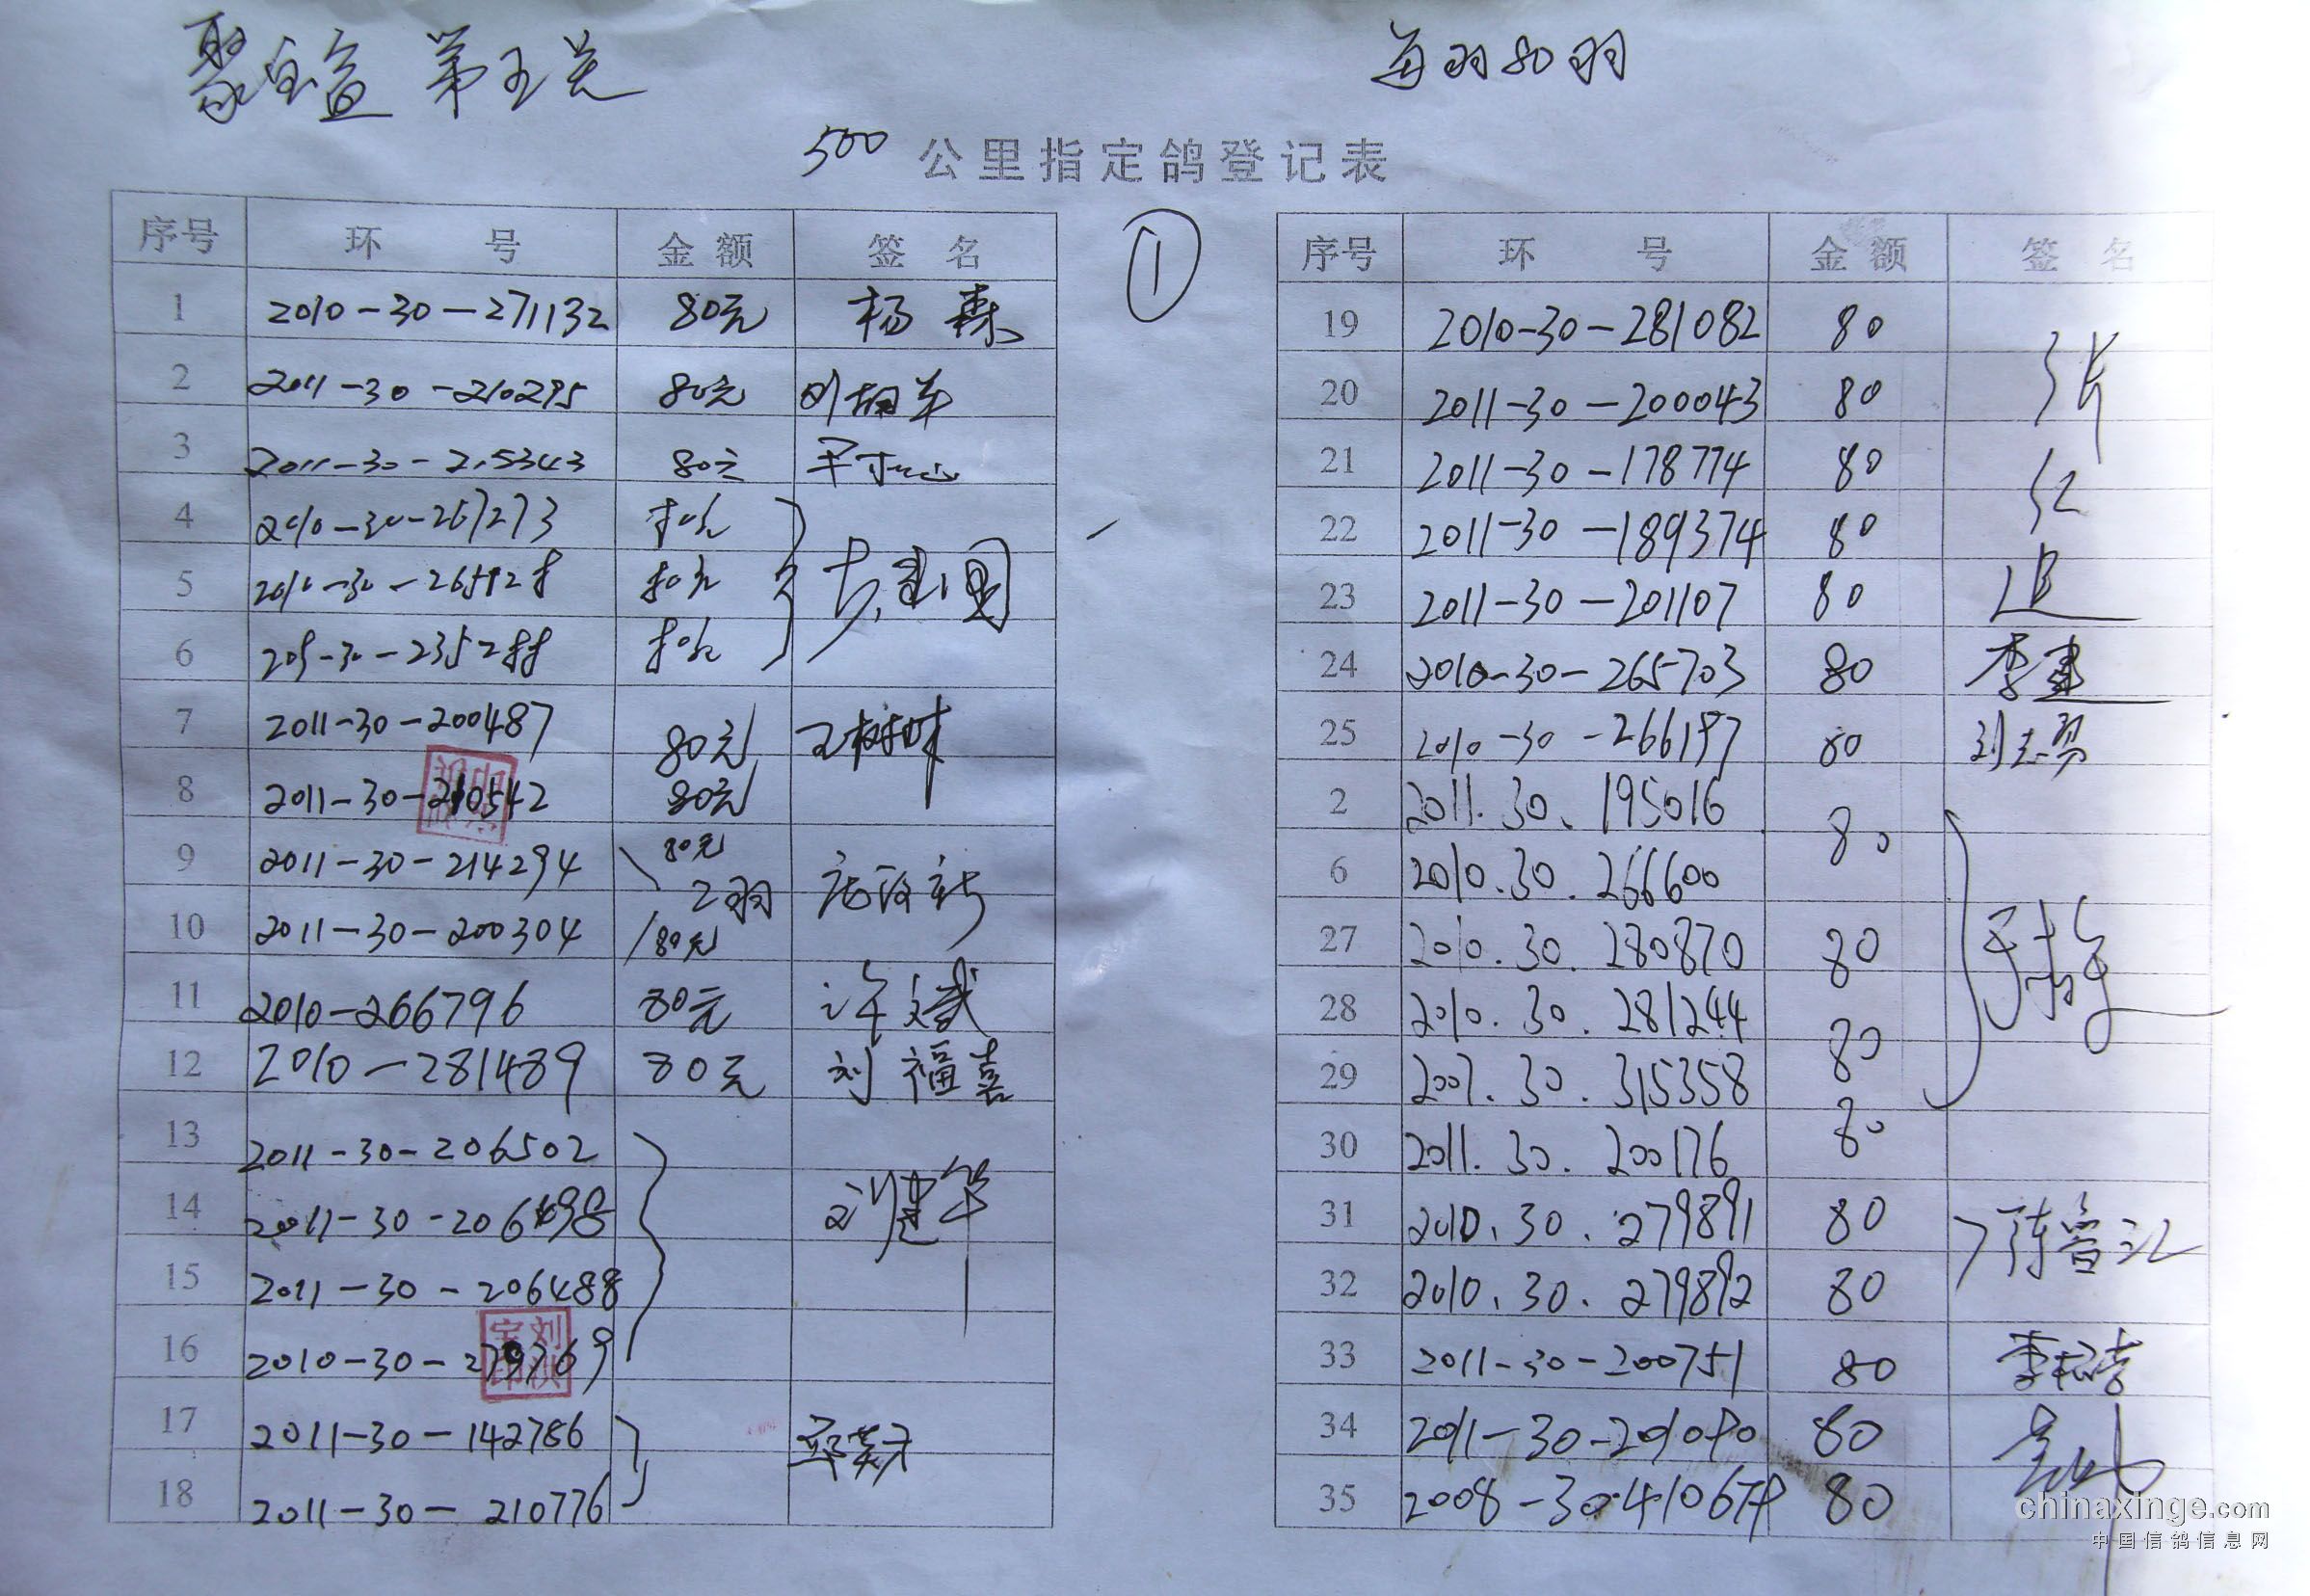 聚宝盆 第五关
每羽80羽
500 公里指定鸽登记表
①
序号 环 号 金 额 签 名
1 2010-30-271132 80元 杨森
2 2011-30-210295 80元
3 2011-30-215343 80元
4 2010-30-267273 80元
5 2010-30-265928 80元
6 30-235288 80元
7 2011-30-200487 80元
8 2011-30-210542 80元
9 2011-30-214294 80元
2羽
10 2011-30-200304 80元
11 2010-266796 80元 许文斌
12 2010-281489 80元 刘福喜
13 2011-30-206502
14 2011-30-206498 刘建华
15 2011-30-206488
16 2010-30-279769
17 2011-30-142786
18 2011-30-210776
序号 环 号 金 额 签 名
19 2010-30-281082 80
20 2011-30-200043 80 张
21 2011-30-178774 80 红
22 2011-30-189374 80
23 2011-30-201107 80
24 2010-30-265703 80 李建
25 2010-30-266197 80 刘志勇
2 2011.30.195016 80
6 2010.30.266600
27 2010.30.280870 80
28 2010.30.281244 80
29 2007.30.315358 80
30 2011.30.200176
31 2010.30.279891 80
32 2010.30.279892 80
33 2011-30-200751 80
34 2011-30-201090 80
35 2008-30-410679 80
chinaxinge.com
中国信鸽信息网